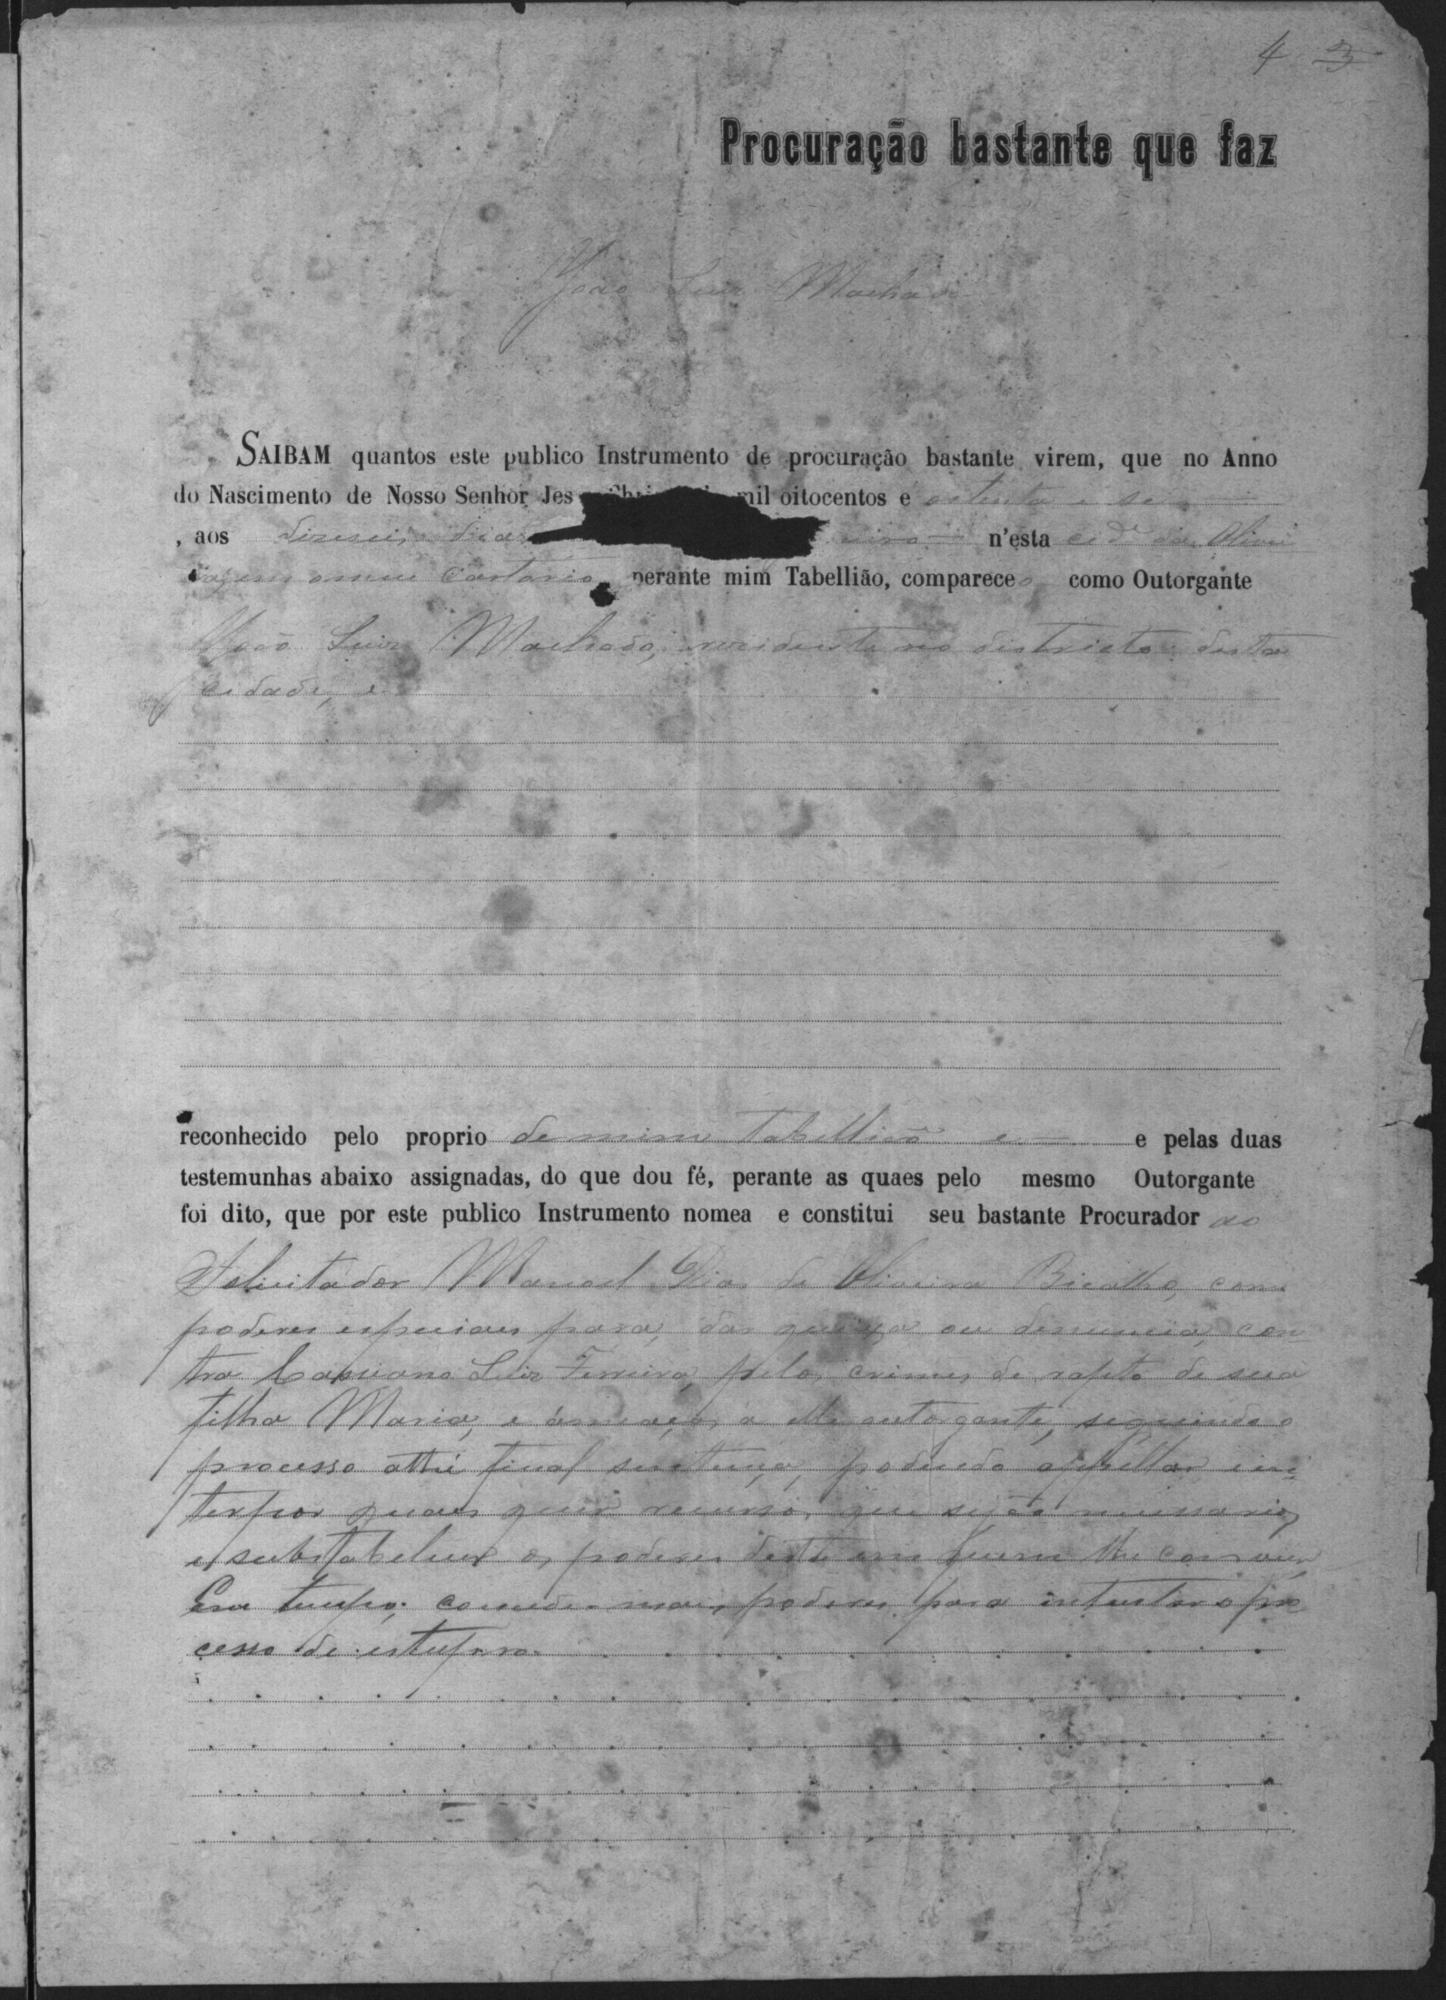 4 3
Procuração bastante que faz
João Luiz Machado
SAIBAM quantos este publico Instrumento de procuração bastante virem, que no Anno
do Nascimento de Nosso Senhor Jes Chri mil oitocentos e oitenta e seis
, aos diseseis dias eiro n'esta cid.e da Olivei
ra, em o meu Cartorio, perante mim Tabellião, comparece o como Outorgante
João Luiz Machado, residente no districto desta
cidade, e
reconhecido pelo proprio de mim Tabellião e e pelas duas
testemunhas abaixo assignadas, do que dou fé, perante as quaes pelo mesmo Outorgante
foi dito, que por este publico Instrumento nomea e constitui seu bastante Procurador ao
Solicitador Manoel Dias de Oliveira Bicalho, com
poderes especiaes para, dar queixa ou denuncia, con
tra Cassiano Luiz Ferreira, pelos crimes de rapto de sua
filha Maria, e ameaças a elle outorgante, seguindo o
processo athé final sentença, podendo appellar in
terpor quaes quer recursos, que sejão necessarios,
e substabelecer os poderes deste em quem lhe convier,
Em tempo; concede mais poderes para intentar o pro
cesso de estupro.